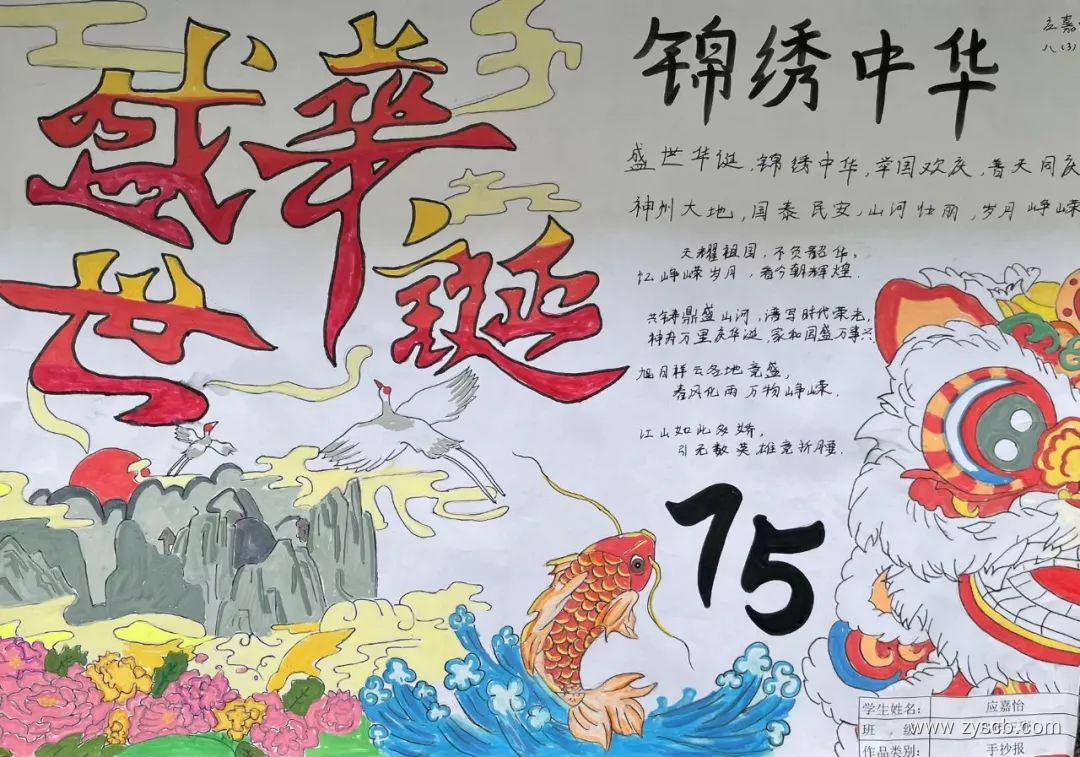 盛世
華誕
锦绣中华
应嘉
八(3)
盛世华诞,锦绣中华,举国欢庆,普天同庆
神州大地,国泰民安,山河壮丽,岁月峥嵘
天耀祖国,不负韶华。
忆峥嵘岁月,看今朝辉煌.
共铸鼎盛山河,谱写时代荣光,
神舟万里庆华诞,家和国盛万事兴
旭日祥云各地竞盛,
春风化雨万物峥嵘.
江山如此多娇,
引无数英雄竞折腰.
75
学生姓名: 应嘉怡
班 级:
www.zyscb.com
作品类别: 手抄报